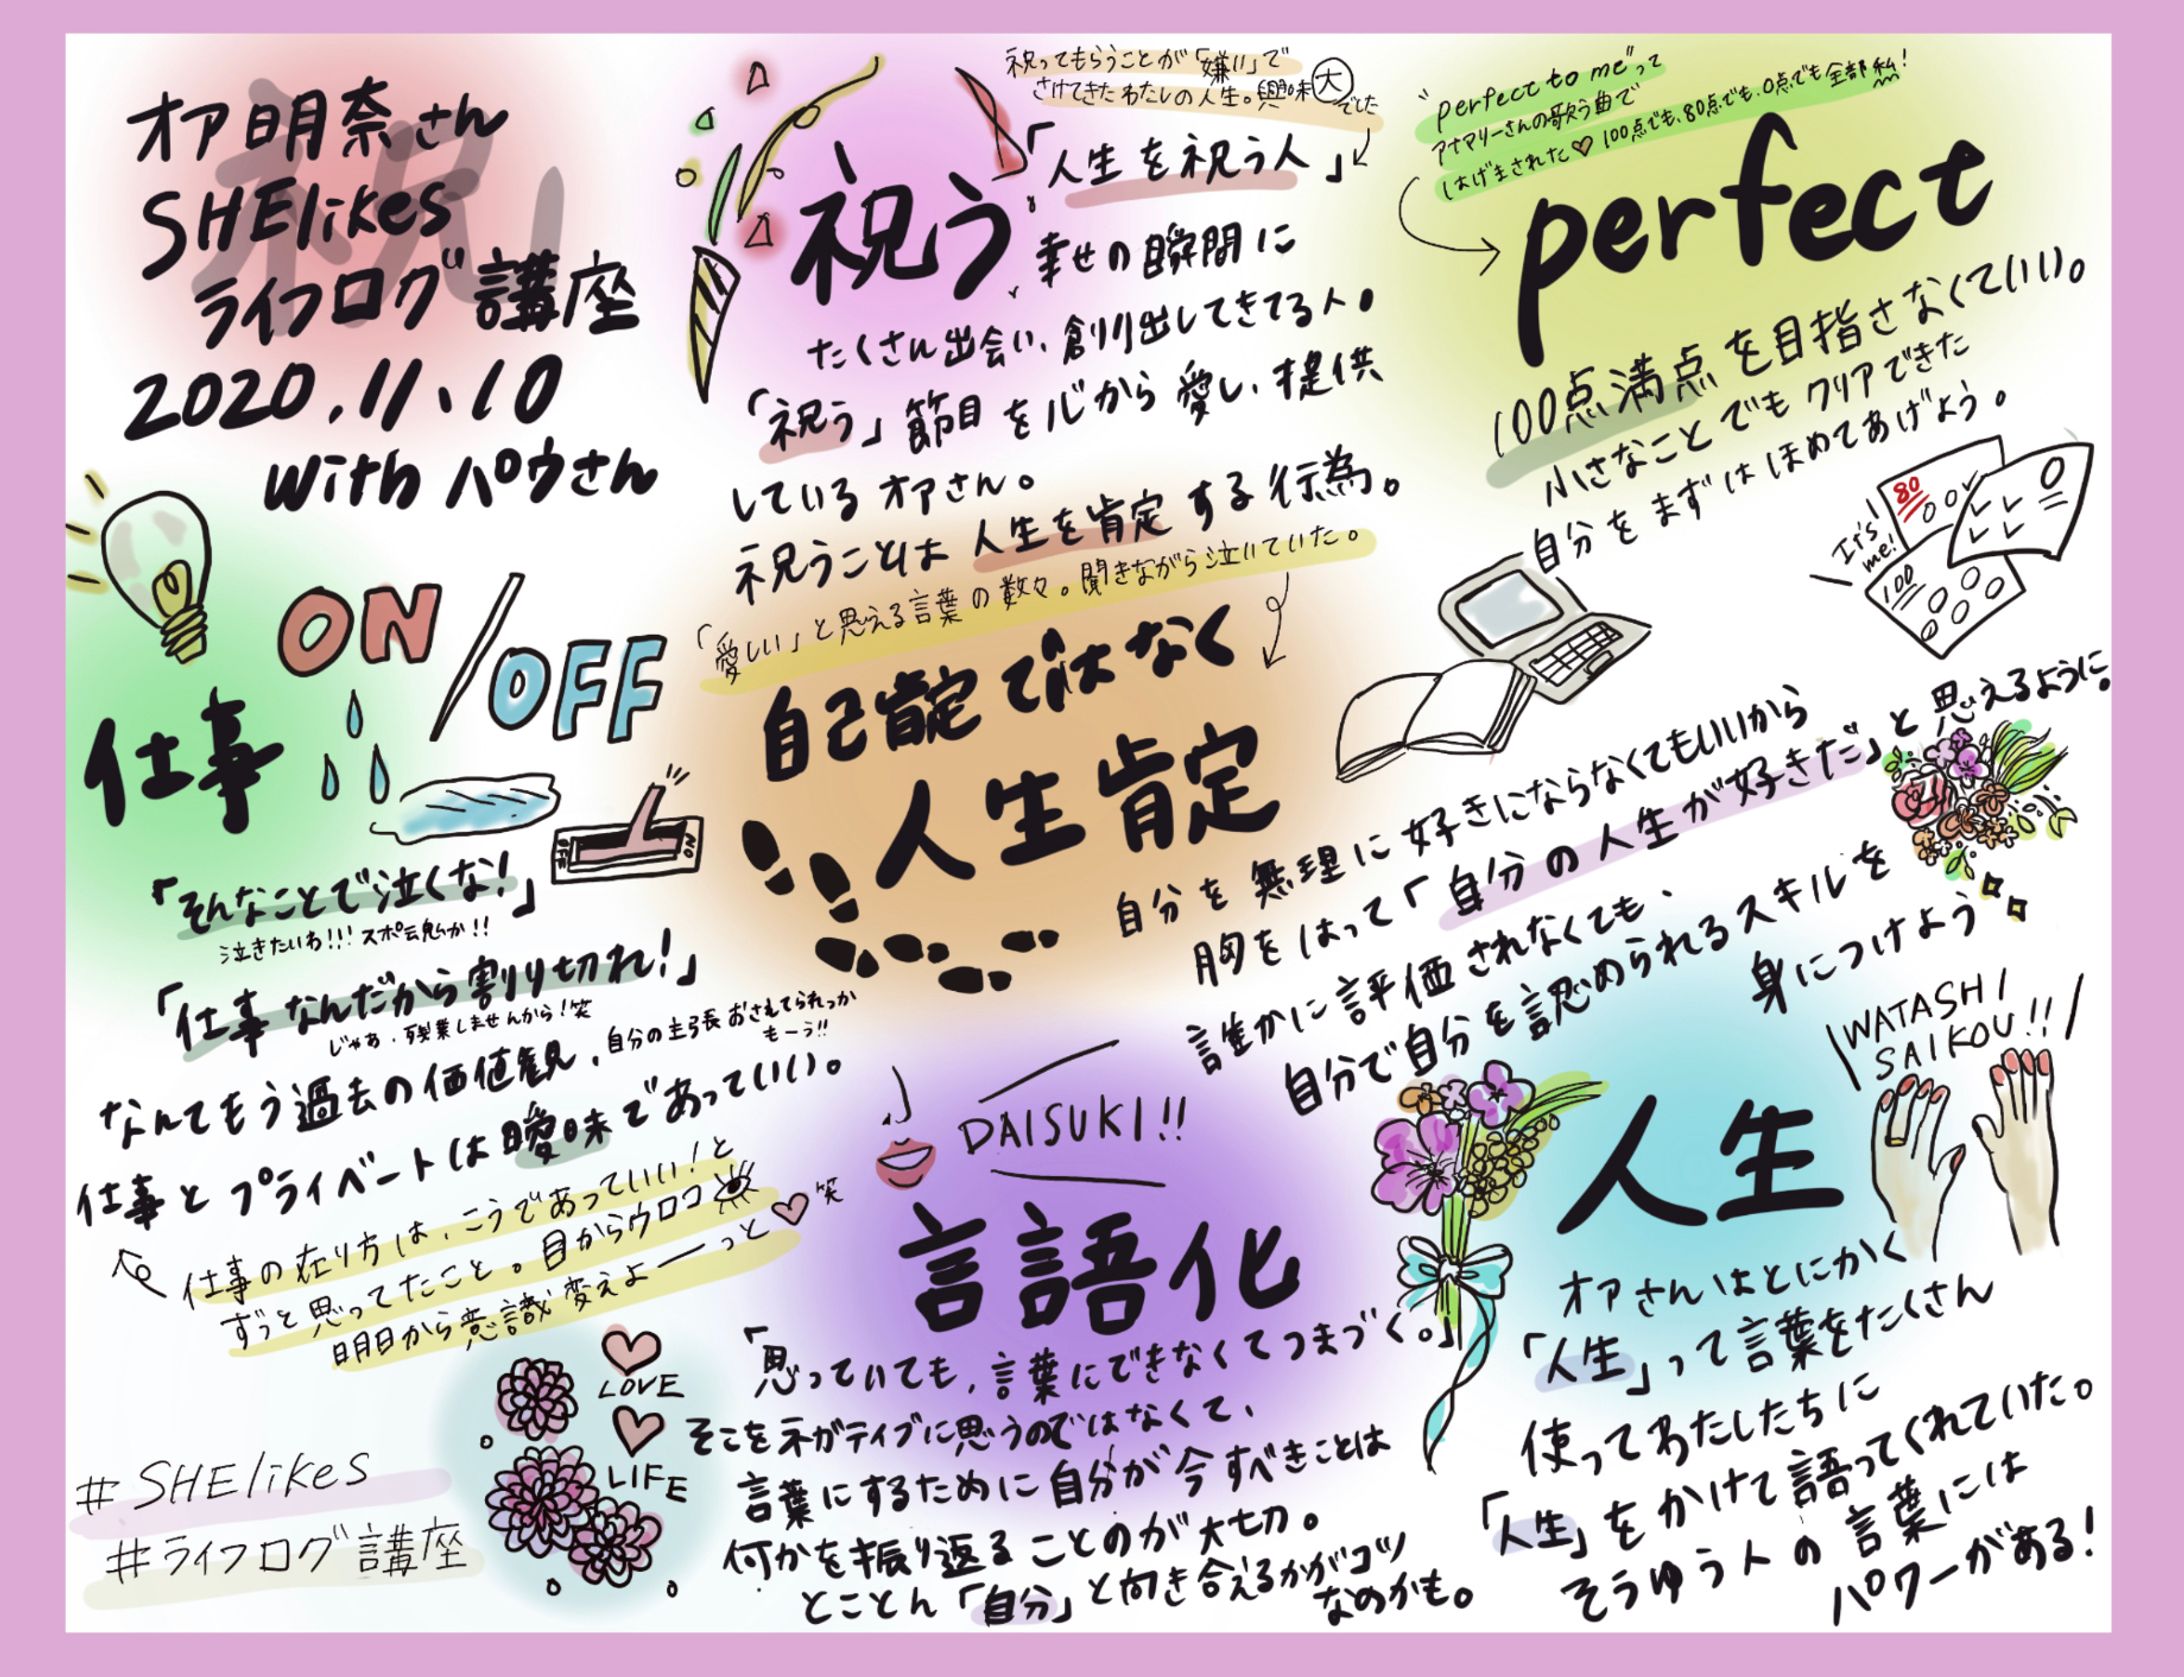 祝
オア明奈さん
SHElikes
ライフログ講座
2020.11.10
with パウさん
祝ってもらうことが「嫌い」で
さけてきたわたしの人生。興味大でした
祝う
「人生を祝う人」
幸せの瞬間に
たくさん出会い、創り出してきてる人。
「祝う」節目を心から愛し、提供
しているオアさん。
祝うことは人生を肯定する行為。
「愛しい」と思える言葉の数々。聞きながら泣いていた。
"perfect to me"って
アナマリーさんの歌う曲で
はげまされた♡100点でも、80点でも、0点でも全部私!
perfect
100点満点を目指さなくていい。
小さなことでもクリアできた
自分をまずはほめてあげよう。
It's me!
80
100
0
仕事
ON/OFF
OFF
ON
「そんなことで泣くな!」
泣きたいわ!!! スポ魂か!!
「仕事なんだから割り切れ!」
じゃあ、残業しませんから!笑
なんてもう過去の価値観、自分の主張おさえてられっか
もーう!!
仕事とプライベートは曖昧であっていい。
仕事の在り方は、こうであっていい!と
ずっと思ってたこと。目からウロコ
明日から意識変えよーーっと♡笑
自己肯定ではなく
人生肯定
自分を無理に好きにならなくてもいいから
胸をはって「自分の人生が好きだ」と思えるように。
誰かに評価されなくても、
自分で自分を認められるスキルを
身につけよう
DAISUKI!!
言語化
「思っていても、言葉にできなくてつまづく。」
そこをネガティブに思うのではなくて、
言葉にするために自分が今すべきことは
何かを振り返ることのが大切。
とことん「自分」と向き合えるかがコツ
なのかも。
WATASHI
SAIKOU!!
人生
オアさんはとにかく
「人生」って言葉をたくさん
使ってわたしたちに
「人生」をかけて語ってくれていた。
そうゆう人の言葉には
パワーがある!
LOVE
LIFE
#SHElikes
#ライフログ講座